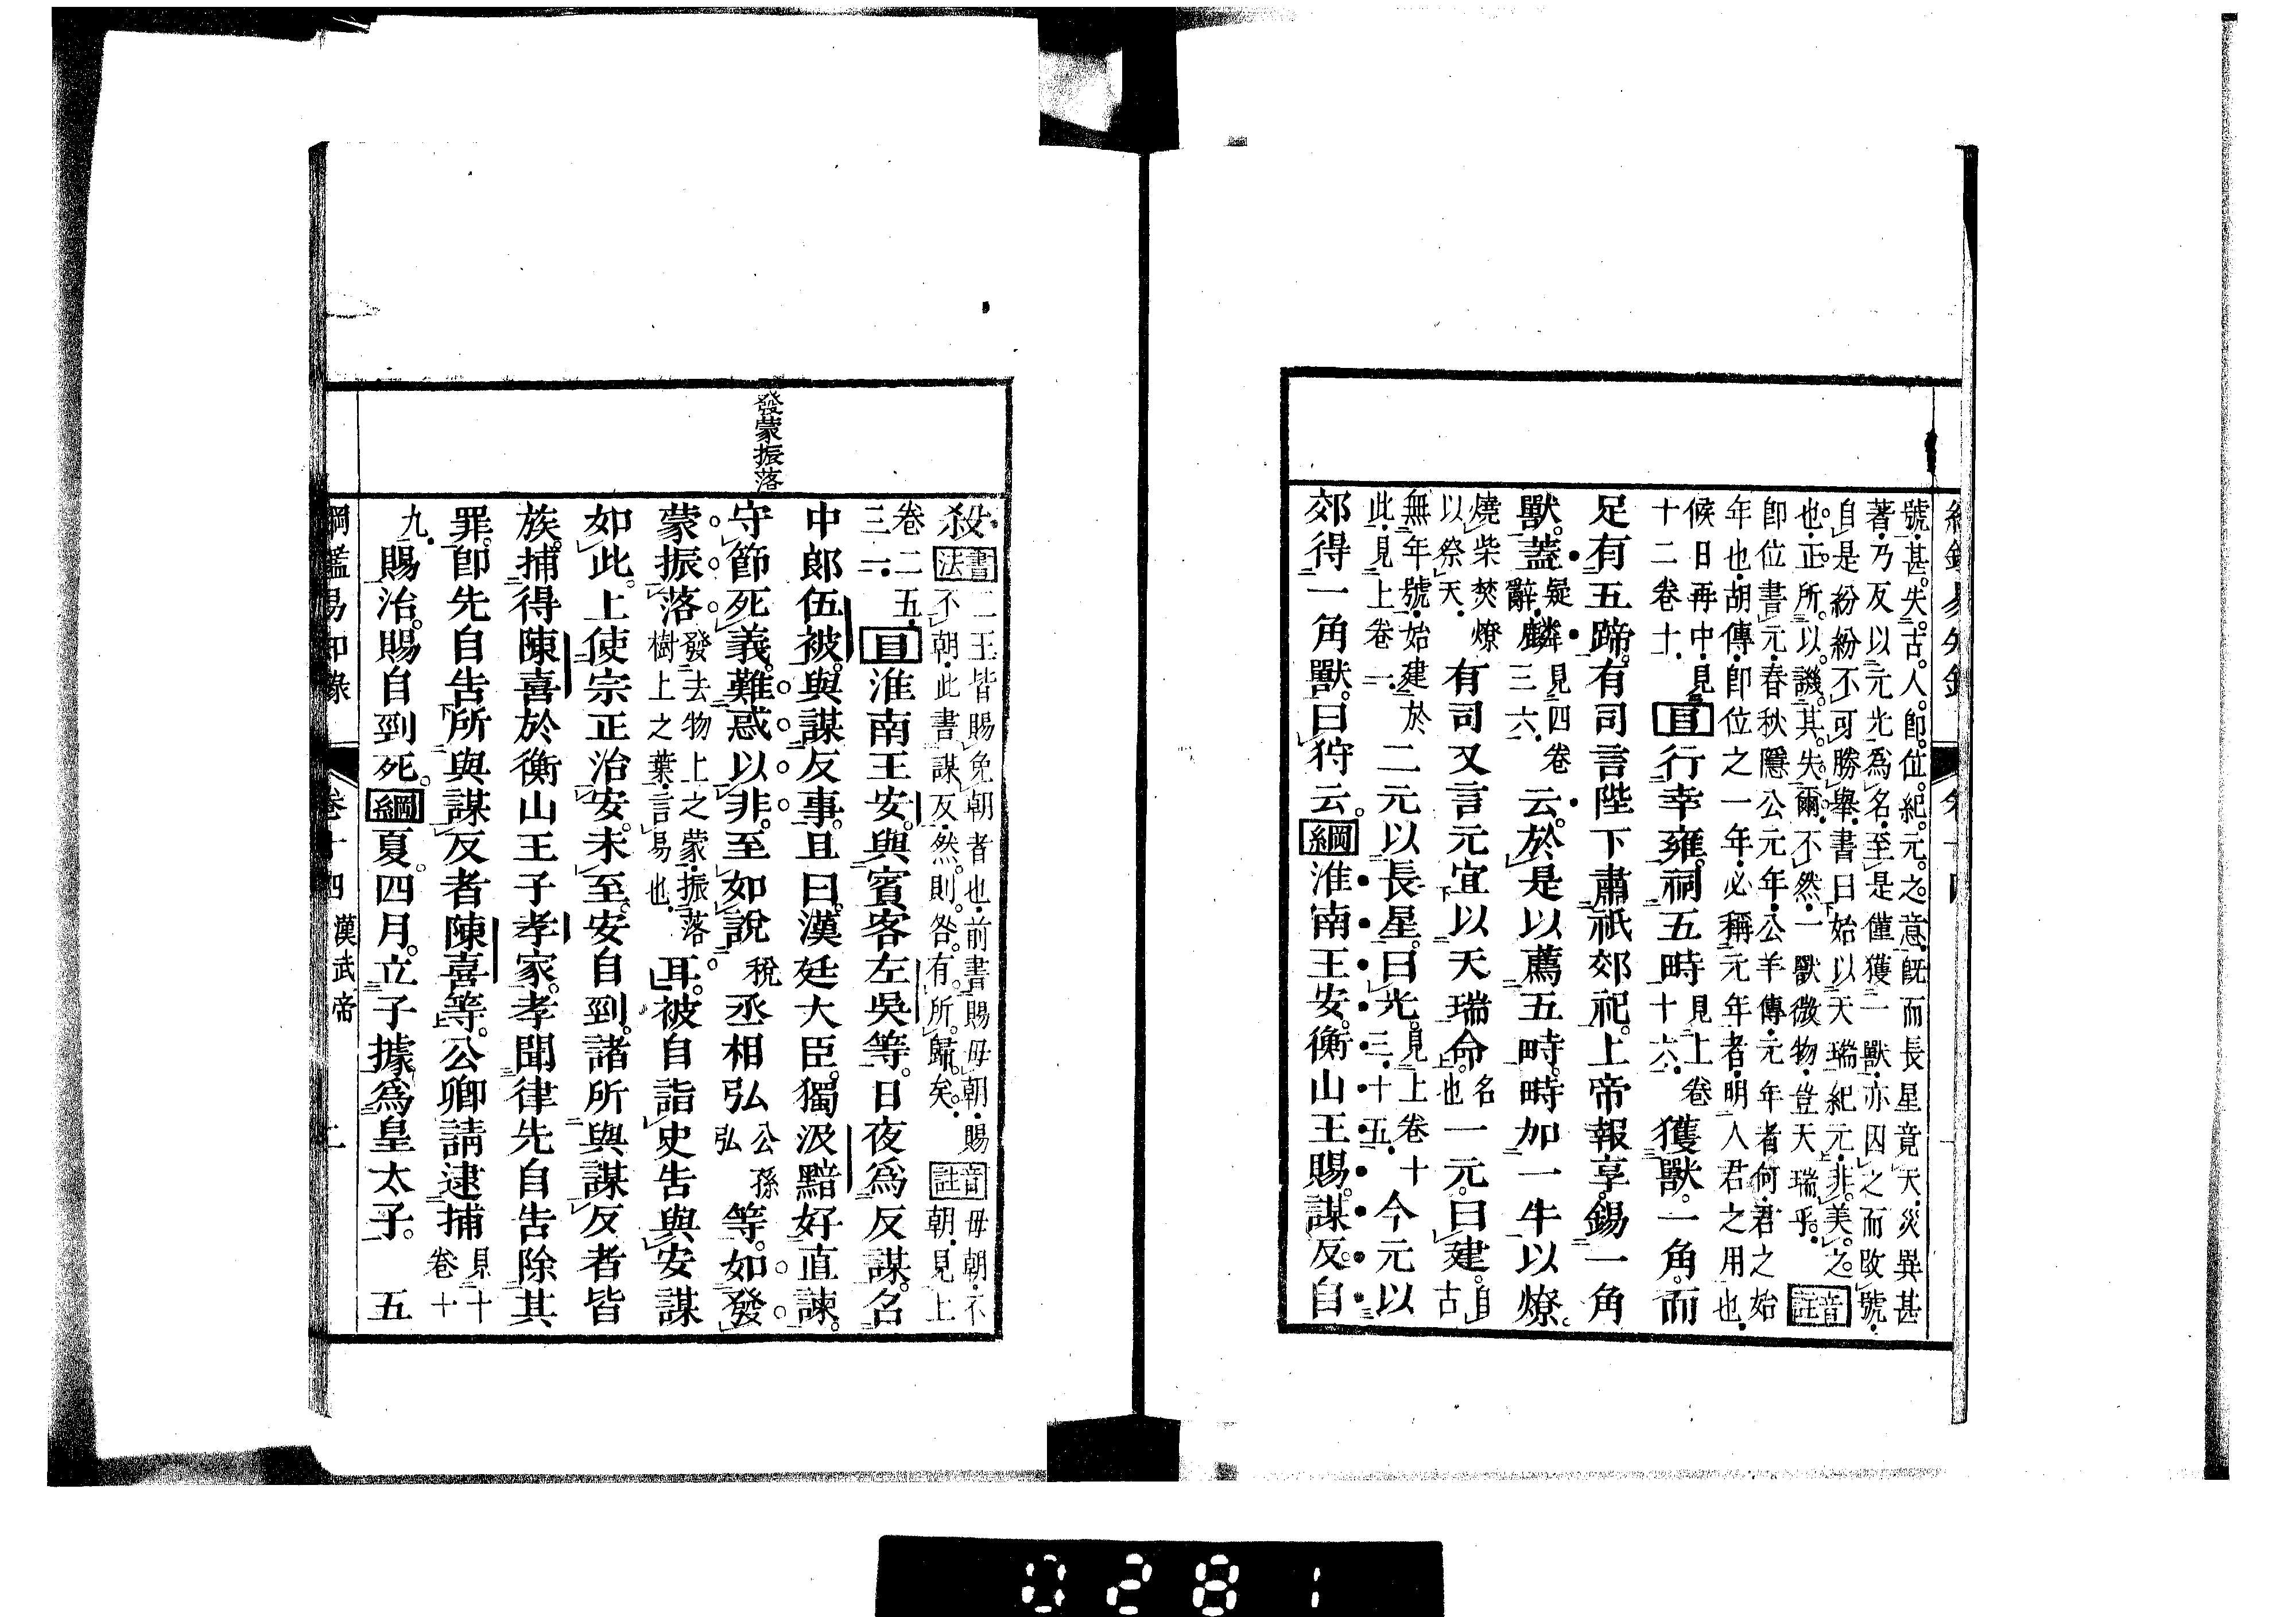 號甚失古人卽位紀元之意旣而長星竟天災異甚
著乃反以元光爲名至是僅獲一獸亦因之而改號
自是紛紛不可勝舉書曰始以天瑞紀元非美之
也正所以譏其失爾不然一獸微物豈天瑞乎 音註
卽位書元春秋隱公元年公羊傳元年者何君之始
年也胡傳卽位之一年必稱元年者明人君之用也
候日再中見
十二卷十
目行幸雍祠五畤見上卷十六獲獸一角而
足有五蹄有司言陛下肅祇郊祀上帝報享錫一角
獸蓋疑辭麟見四卷三六云於是以薦五畤畤加一牛以燎
燒柴焚燎以祭天有司又言元宜以天瑞命名也一元曰建自古
無年號始建於此見上卷一二元以長星曰光見上卷十三十五今元以
郊得一角獸曰狩云綱淮南王安衡山王賜謀反自
發蒙振落
殺書法二王皆賜免朝者也前書賜毋朝賜
不朝此書謀反然則咎有所歸矣音註毋朝不朝見上
卷二五三一目淮南王安與賓客左吳等日夜爲反謀名
中郎伍被與謀反事且曰漢廷大臣獨汲黯好直諫
守節死義難惑以非至如說稅丞相弘公孫弘等如發
蒙振落發去物上之蒙振落樹上之葉言易也耳被自詣吏告與安謀
如此上使宗正治安未至安自剄諸所與謀反者皆
族捕得陳喜於衡山王子孝家孝聞律先自告除其
罪卽先自告所與謀反者陳喜等公卿請逮捕見十卷十
九賜治賜自剄死綱夏四月立子據爲皇太子 五
綱鑑易知錄 卷十四 漢武帝 二